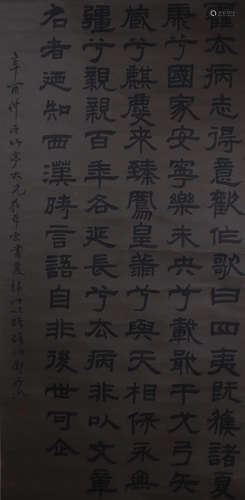 霍去病志得意歡作歌曰四夷既獲諸夏
康兮國家安寧樂未央兮載戢干戈弓矢
藏兮麒麐來臻鳳皇翔兮與天相保永無
疆兮親親百年各延長兮去病非以文章
名者迺知西漢時言語自非後世可企
辛酉仲冬